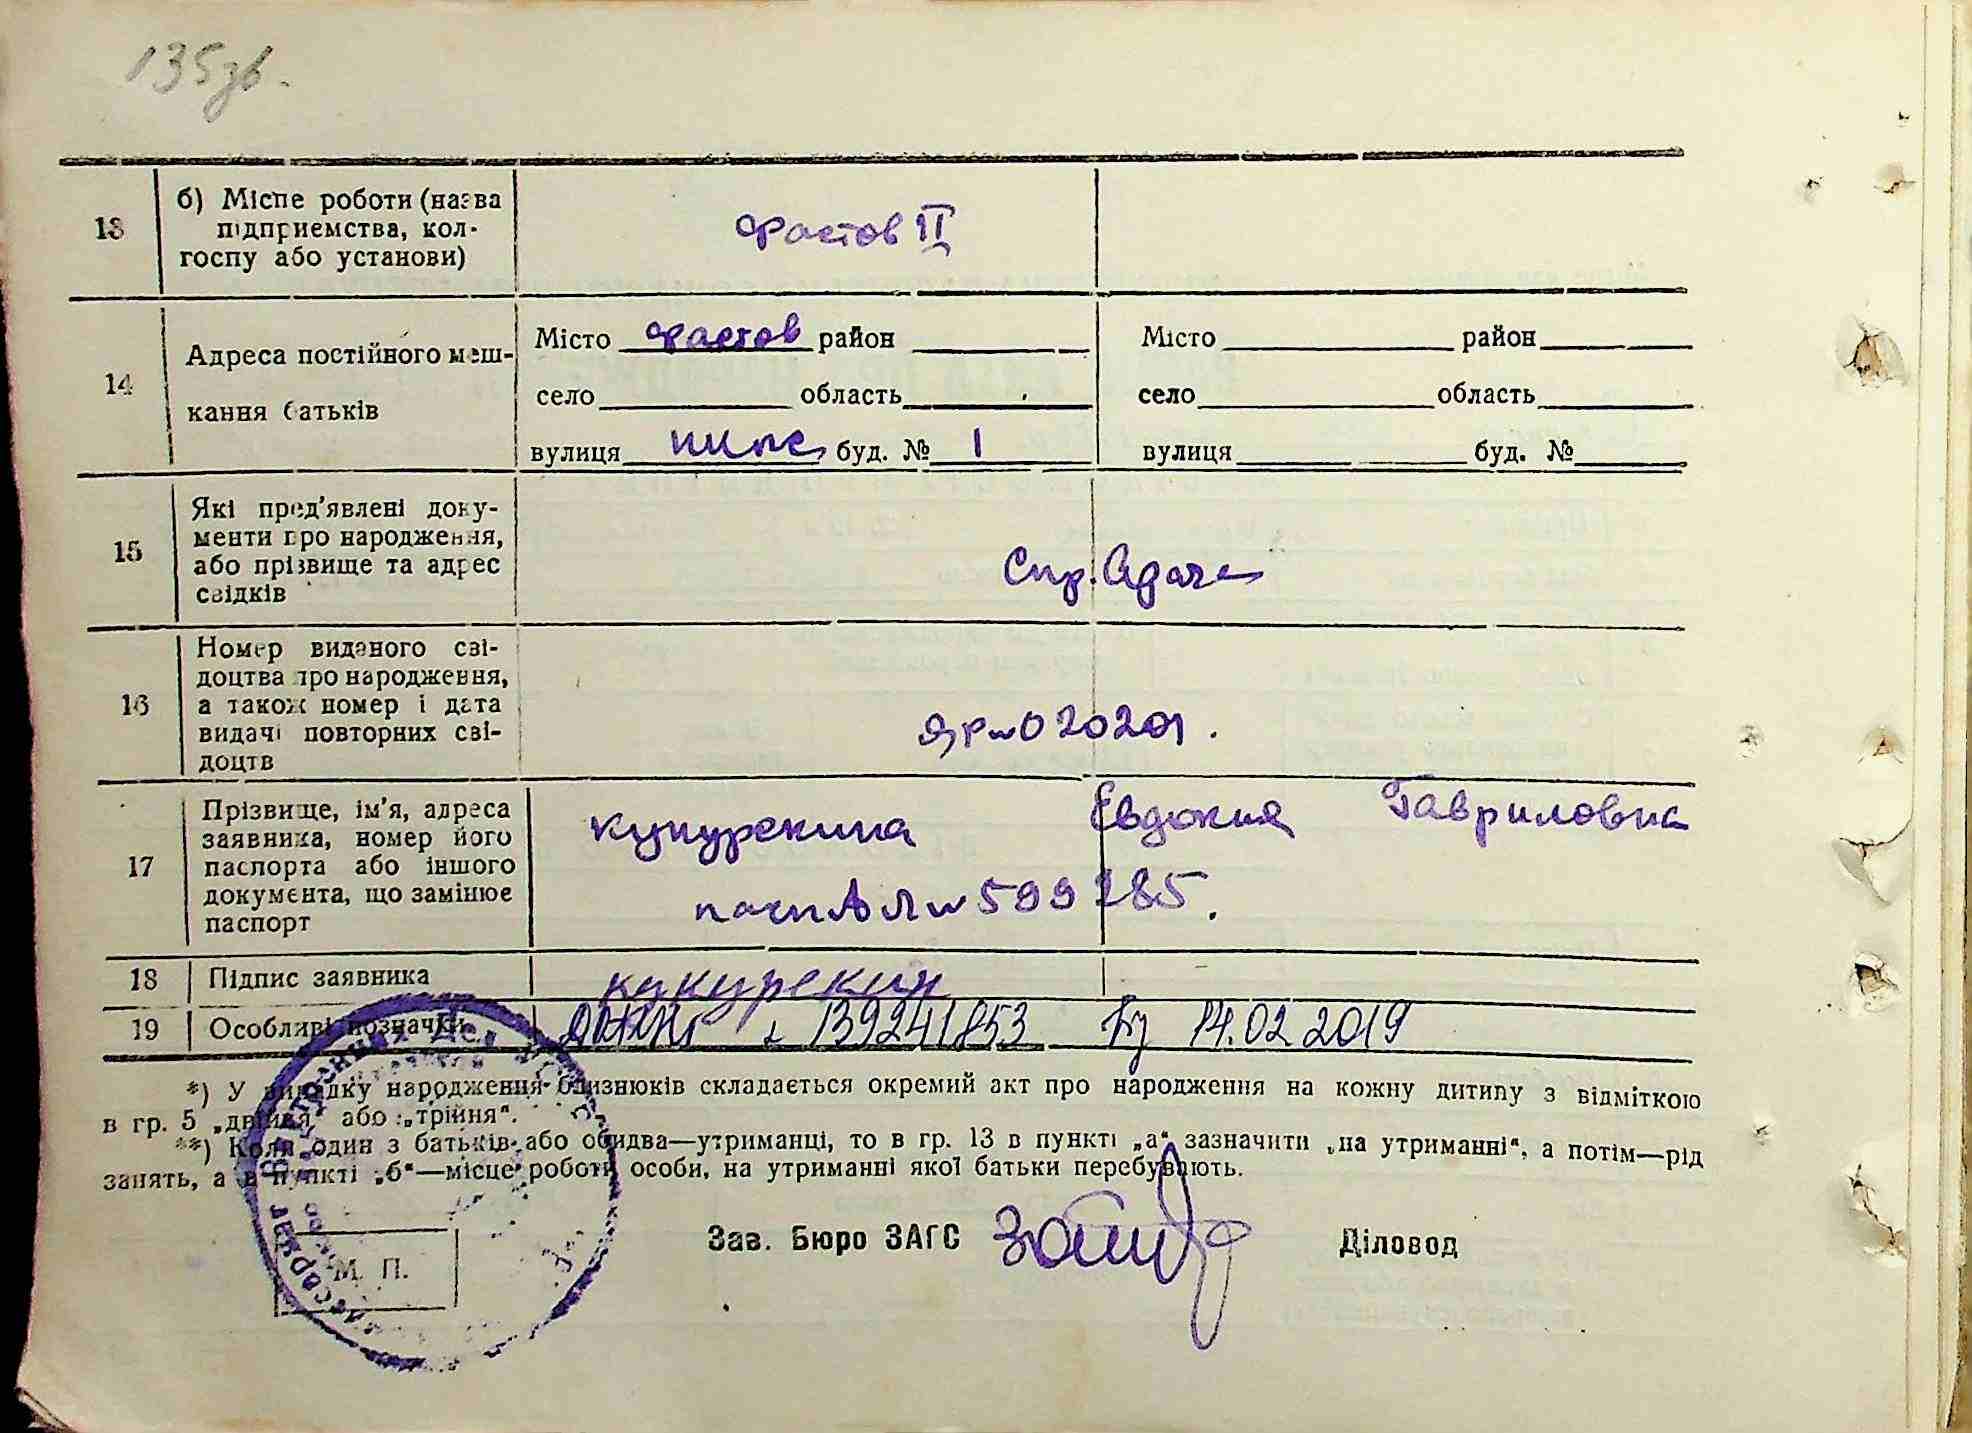 135зв.
13
б) Місце роботи (назва
підприємства, кол-
госпу або установи)
Фастов II
14
Адреса постійного меш-
кання батьків
Місто Фастов район
село область
вулиця буд. № 1
Місто район
село область
вулиця буд. №
15
Які пред'явлені доку-
менти про народження,
або прізвище та адрес
свідків
Спр.
16
Номер виданого сві-
доцтва про народження,
а також номер і дата
видачі повторних сві-
доцтв
№ 020201.
17
Прізвище, ім'я, адреса
заявника, номер його
паспорта або іншого
документа, що замінює
паспорт
Кукурекина Евдокия Гавриловна
№ 599785.
18 Підпис заявника
Кукурекин
19 Особливі позначки
139241853 14.02.2019
*) У випадку народження близнюків складається окремий акт про народження на кожну дитину з відміткою
в гр. 5 „двійня" або „трійня".
**) Коли один з батьків або обидва—утриманці, то в гр. 13 в пункті „а" зазначити „на утриманні", а потім—рід
занять, а в пункті „б"—місце роботи особи, на утриманні якої батьки перебувають.
М. П.
Зав. Бюро ЗАГС
Діловод